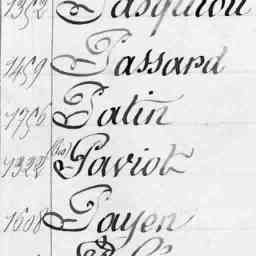 1352 Pasquiou
1459 Passard
1756 Patin
1322 (bis) Paviot
1608 Payen